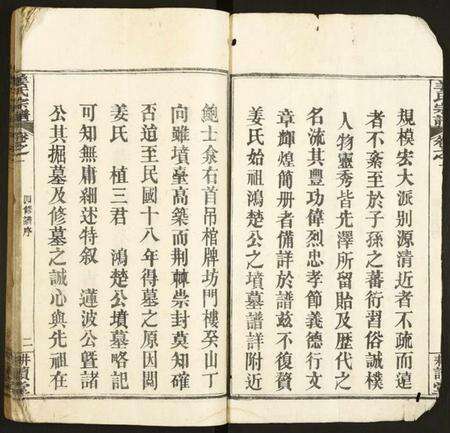 規模宏大派別源清近者不疏而遠
者不紊至於子孫之蕃衍習俗誠樸
人物靈秀皆先澤所留貽及歷代之
名流其豐功偉烈忠孝節義德行文
章輝煌簡册者備詳於譜茲不復贅
姜氏始祖鴻楚公之墳墓譜詳附近
鮑士僉右首吊棺牌坊門樓癸山丁
向雖墳臺高築而荆棘崇封莫知確
否迨至民國十八年得墓之原因閱
姜氏 植三君 鴻楚公墳墓略記
可知無庸細述特叙 蓮波公曁諸
公其掘墓及修墓之誠心與先祖在
姜氏宗譜
卷之一
四修譜序
二
耕讀堂